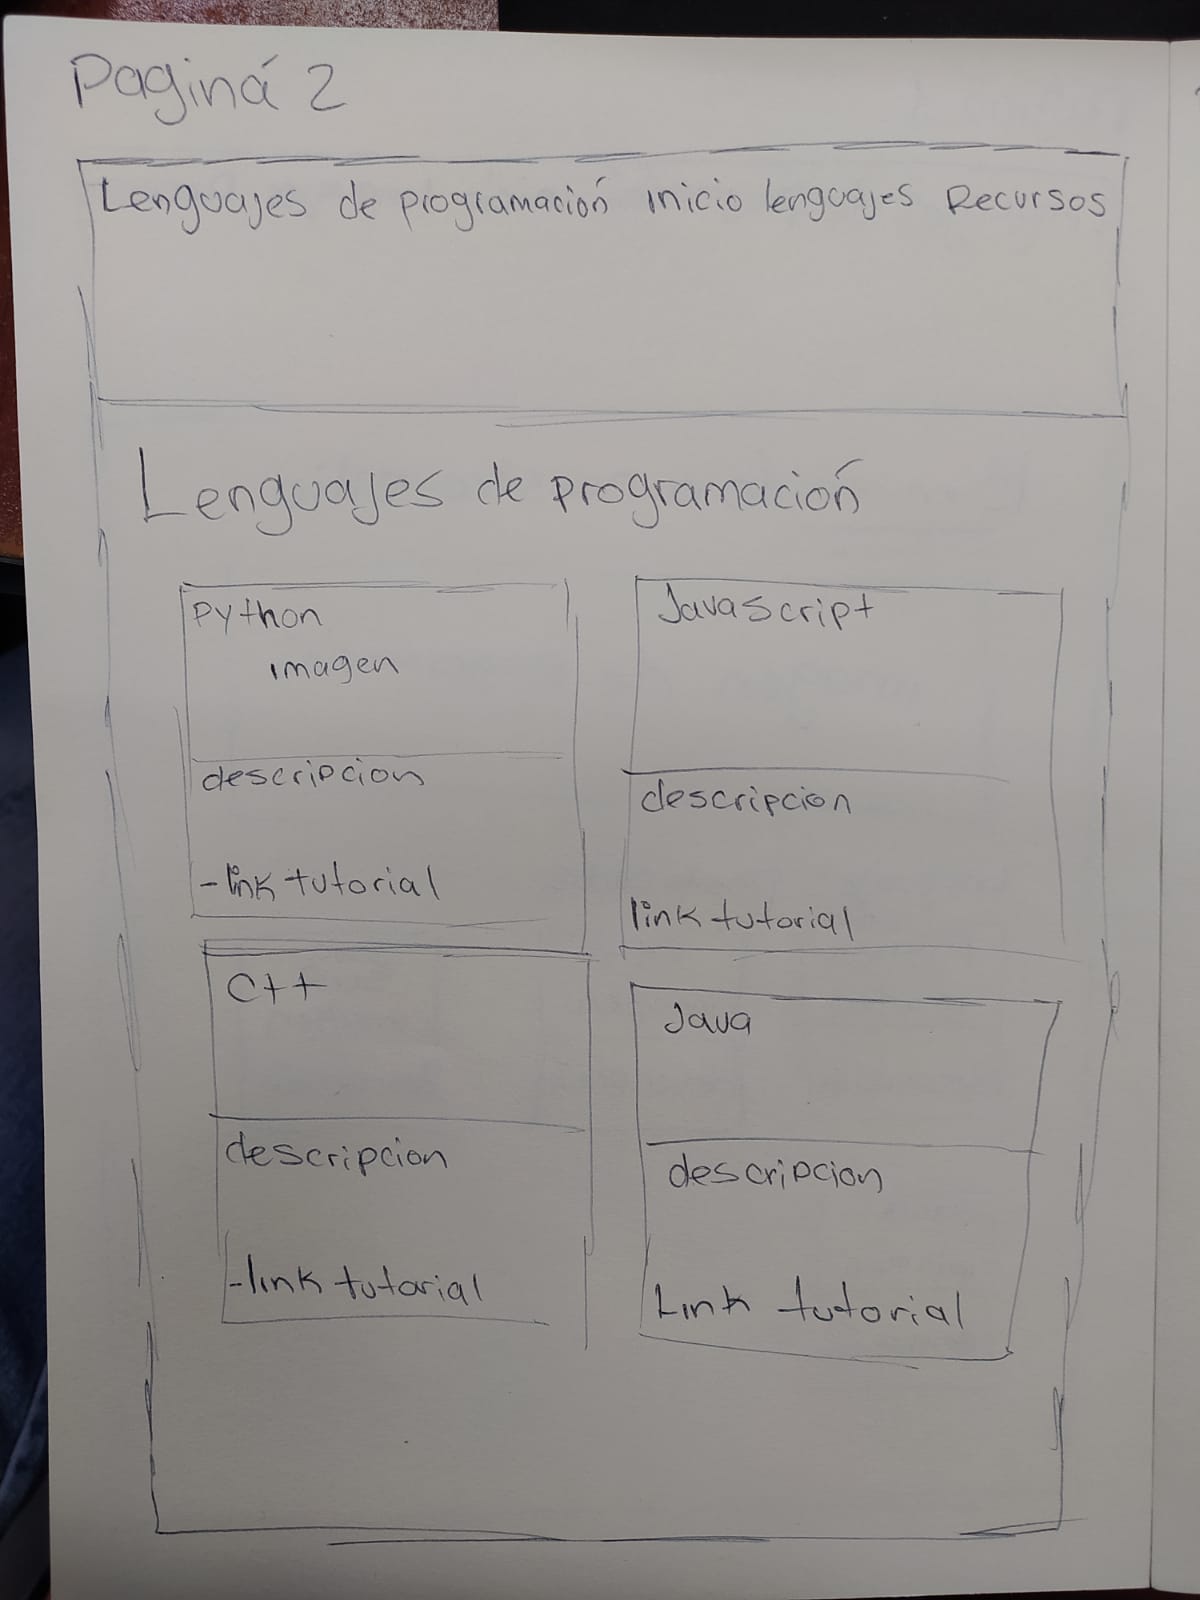 Paginá 2
Lenguajes de programación inicio lenguajes Recursos
Lenguajes de programación
Python
imagen
descripcion
-link tutorial
JavaScript
descripcion
link tutorial
C++
descripcion
-link tutorial
Java
descripcion
Link tutorial